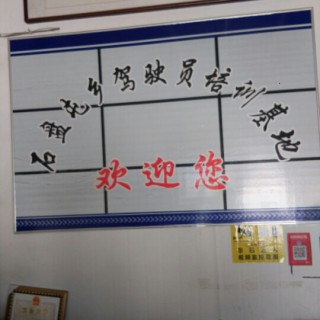 石盘屯乡驾驶员培训基地
欢迎您